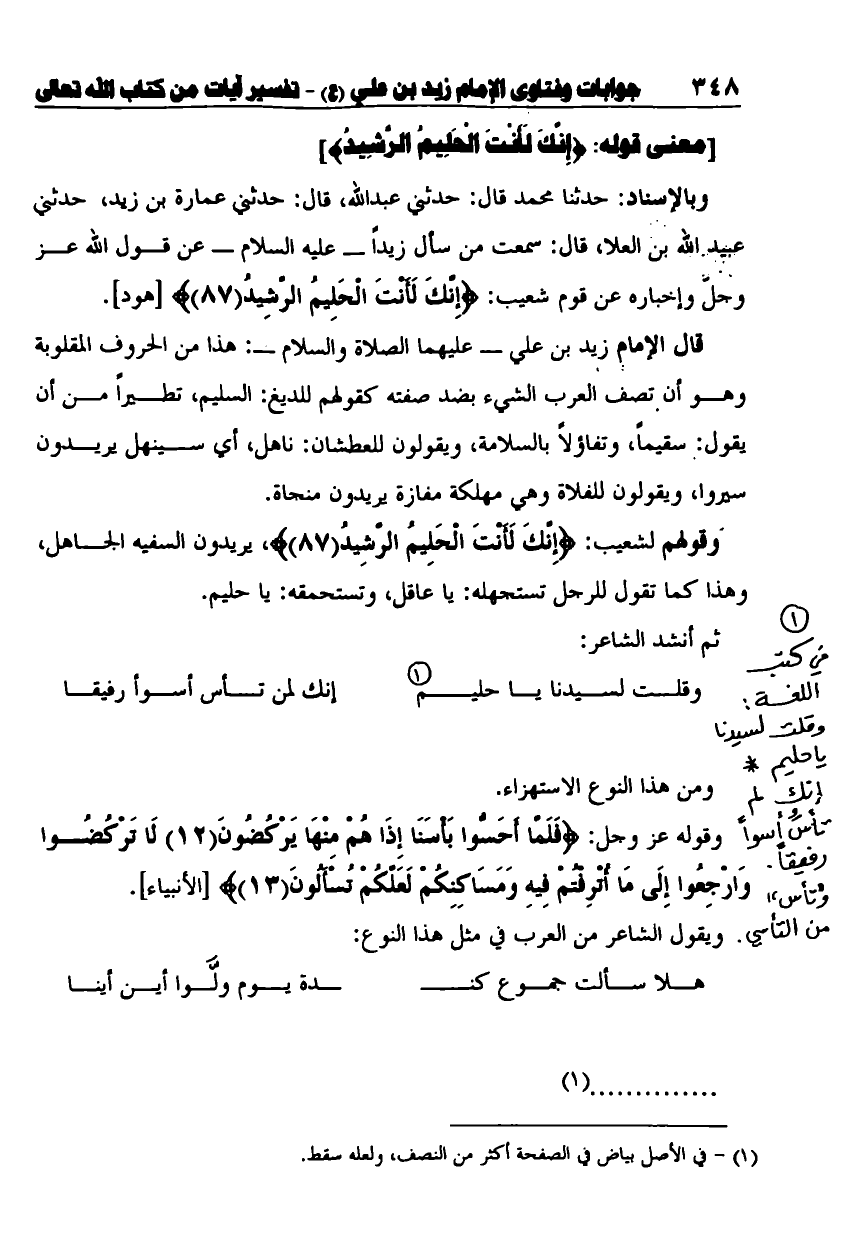 ٣٤٨ جوابات وفتاوى الإمام زيد بن علي (ع) - تفسير آيات من كتاب الله تعالى
[معنى قوله: ﴿إِنَّكَ لَأَنْتَ الْحَلِيمُ الرَّشِيدُ﴾]
وبالإسناد: حدثنا محمد قال: حدثني عبدالله، قال: حدثني عمارة بن زيد، حدثني
عبيد الله بن العلا، قال: سمعت من سأل زيداً – عليه السلام – عن قول الله عز
وجلّ وإخباره عن قوم شعيب: ﴿إِنَّكَ لَأَنْتَ الْحَلِيمُ الرَّشِيدُ(٨٧)﴾ [هود].
قال الإمام زيد بن علي – عليهما الصلاة والسلام –: هذا من الحروف المقلوبة
وهو أن تصف العرب الشيء بضد صفته كقولهم للديغ: السليم، تطيراً من أن
يقول: سقيماً، وتفاؤلاً بالسلامة، ويقولون للعطشان: ناهل، أي سينهل يريدون
سيروا، ويقولون للفلاة وهي مهلكة مفازة يريدون منحاة.
وقولهم لشعيب: ﴿إِنَّكَ لَأَنْتَ الْحَلِيمُ الرَّشِيدُ(٨٧)﴾، يريدون السفيه الجاهل،
وهذا كما تقول للرجل تستجهله: يا عاقل، وتستحمقه: يا حليم.
ثم أنشد الشاعر:
وقلت لسيدنا يا حليم (١) إنك لمن تأس أسوأ رفيقا
ومن هذا النوع الاستهزاء.
وقوله عز وجل: ﴿فَلَمَّا أَحَسُّوا بَأْسَنَا إِذَا هُمْ مِنْهَا يَرْكُضُونَ(١٢) لَا تَرْكُضُوا
وَارْجِعُوا إِلَى مَا أُتْرِفْتُمْ فِيهِ وَمَسَاكِنِكُمْ لَعَلَّكُمْ تُسْأَلُونَ(١٣)﴾ [الأنبياء].
ويقول الشاعر من العرب في مثل هذا النوع:
هلا سألت جموع كنـ ـدة يوم ولَّوا أين أينا
..............(١)
(١) - في الأصل بياض في الصفحة أكثر من النصف، ولعله سقط.
(١)
في كتب
اللغة:
وقلت لسيدنا
يا حليم *
إنك لم
تأسُ أسواً
رفيقاً.
وتأس"
من التأسي.